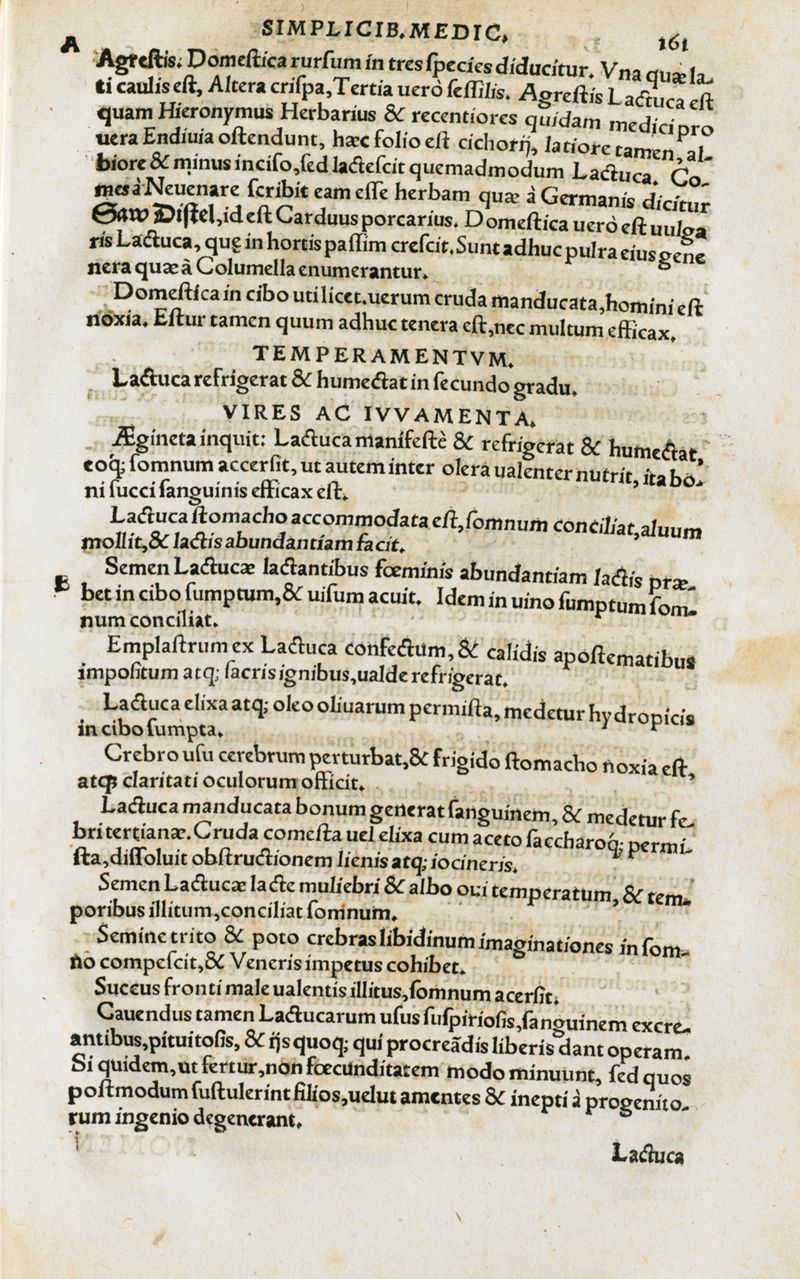 SIMPLICIB. MEDIC.
161
A
Agrestis. Domestica rursum in tres species diducitur. Vna quæ la-
ti caulis est, Altera crispa, Tertia uerò sessilis. Agrestis Lactuca est
quam Hieronymus Herbarius & recentiores quidam medici pro
uera Endiuia ostendunt, hæc folio est cichorij, latiore tamen, al-
biore & minus inciso, sed lactescit quemadmodum Lactuca. Co-
mes à Neuenare scribit eam esse herbam quæ à Germanis dicitur
Saw Distel, id est Carduus porcarius. Domestica uerò est uulga
ris Lactuca, quę in hortis passim crescit. Sunt adhuc pulra eius gene
nera quæ à Columella enumerantur.
Domestica in cibo utilicet. uerum cruda manducata, homini est
noxia. Estur tamen quum adhuc tenera est, nec multum efficax.
TEMPERAMENTVM.
Lactuca refrigerat & humectat in secundo gradu.
VIRES AC IVVAMENTA.
Ægineta inquit: Lactuca manifestè & refrigerat & humectat,
eoq; somnum accersit, ut autem inter olera ualenter nutrit, ita bo-
ni succi sanguinis efficax est.
Lactuca stomacho accommodata est, somnum conciliat, aluum
mollit, & lactis abundantiam facit.
Semen Lactucæ lactantibus fœminis abundantiam lactis præ-
B
bet in cibo sumptum, & uisum acuit. Idem in uino sumptum som-
num conciliat.
Emplastrum ex Lactuca confectum, & calidis apostematibus
impositum atq; sacris ignibus, ualde refrigerat.
Lactuca elixa atq; oleo oliuarum permista, medetur hydropicis
in cibo sumpta.
Crebro usu cerebrum perturbat, & frigido stomacho noxia est,
atq; claritati oculorum officit.
Lactuca manducata bonum generat sanguinem, & medetur fe-
bri tertianæ. Cruda comesta uel elixa cum aceto saccharoq́; permi-
sta, dissoluit obstructionem lienis atq; iocineris.
Semen Lactucæ lacte muliebri & albo oui temperatum, & tem-
poribus illitum, conciliat somnum.
Semine trito & poto crebras libidinum imaginationes in som-
no compescit, & Veneris impetus cohibet.
Succus fronti male ualentis illitus, somnum acersit.
Cauendus tamen Lactucarum usus suspiriosis, sanguinem excre-
antibus, pituitosis, & ijs quoq; qui procreādis liberis dant operam.
Si quidem, ut fertur, non fœcunditatem modo minuunt, sed quos
postmodum sustulerint filios, uelut amentes & inepti à progenito-
rum ingenio degenerant.
Lactuca